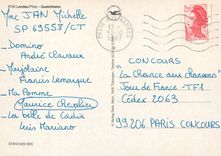 6740 Landau/Pfalz - Queichheim
Mr JAN Michelle
SP 69558/CT
Domino
André Claveaux
Marjolaine
Francis Lemarque
Ma Pomme
Maurice Chevalier
La belle de Cadix
Luis Mariano
CONCOURS
"La Chance aux chansons"
Tour de France - TF1
Cédex 2063
99206 PARIS CONCOURS